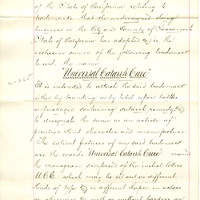 of the State of California relating to
trademarks that the undersigned doing
business in the City and County of San
State of California has adopted and is the
exclusive owner of the following trademark
to wit, the name
"Universal Catarrh Cure"
It is intended to attach the said trademark
either by branding on label, box, bottle
or package containing catarrh remedy &
to designate the same as an article of
peculiar kind character and manufacture
The essential features of said trademark
are the words Universal Catarrh Cure and
the monogram composed of the initial letters
U.C.C. which may be set in different
kinds of type & in different shapes, in colors
or otherwise & with or without borders or